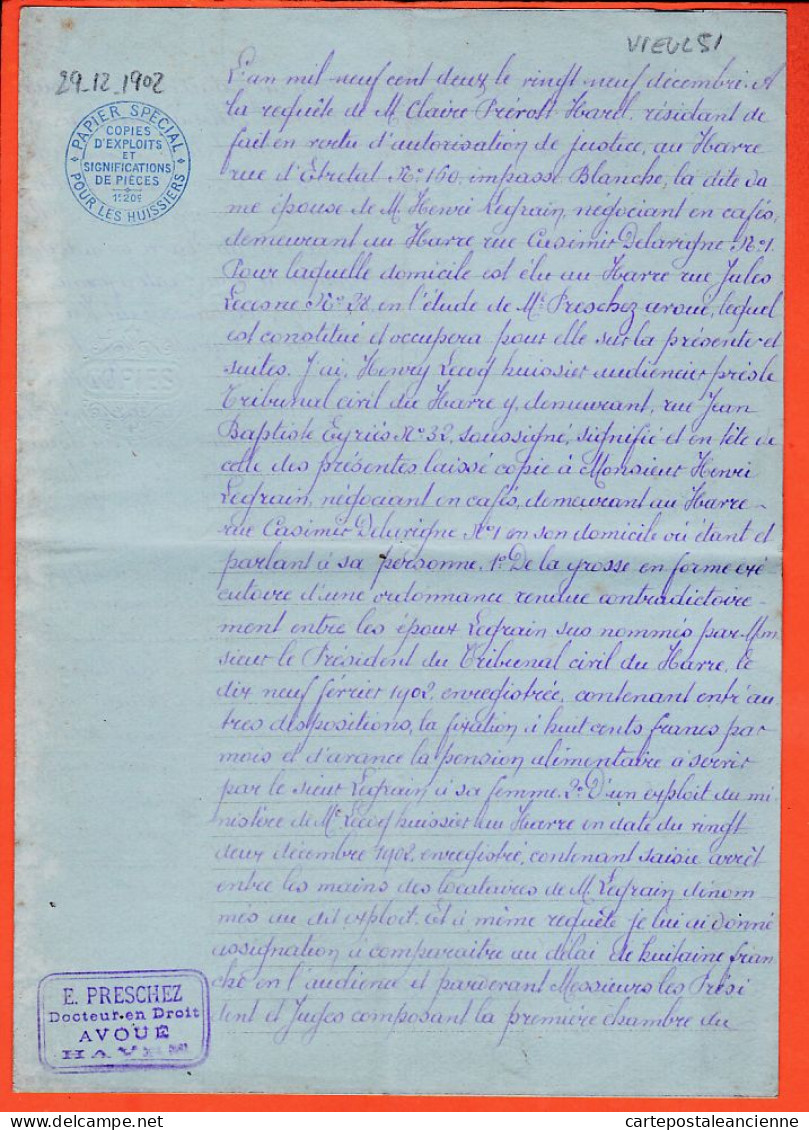 VIEUX 51
29_12_1902
PAPIER SPÉCIAL
COPIES
D'EXPLOITS
ET
SIGNIFICATIONS
DE PIÈCES
1F20C
POUR LES HUISSIERS
L'an mil neuf cent deux le vingt neuf décembre. A
la requête de M. Claire Prévost Harel, résidant de
fait en vertu d'autorisation de justice, au Havre
rue d'Etretat No 160, impasse Blanche, la dite da
me épouse de M. Henri Legrain, négociant en cafés,
demeurant au Havre rue Casimir Delavigne No 1.
Pour laquelle domicile est élu au Havre rue Jules
Lecesne No 28 en l'étude de Me Preschez avoué, lequel
est constitué et occupera pour elle sur la présente et
suites. J'ai, Henry Lecoq huissier audiencier près le
Tribunal civil du Havre y, demeurant, rue Jean
Baptiste Eyriès No 32, soussigné, signifié et en tête de
celle des présentes laissé copie à Monsieur Henri
Legrain, négociant en cafés, demeurant au Havre
rue Casimir Delavigne No 1 en son domicile où étant et
parlant à sa personne. 1o De la grosse en forme exé
cutoire d'une ordonnance rendue contradictoire-
ment entre les époux Legrain sus nommés par Mon
sieur le Président du Tribunal civil du Havre, le
dix neuf février 1902, enregistrée, contenant entr'au
tres dispositions, la fixation à huit cents francs par
mois et d'avance la pension alimentaire à servir
par le sieur Legrain à sa femme. 2o D'un exploit du mi-
nistère de Me Lecoq huissier au Havre en date du vingt
deux décembre 1902, enregistré, contenant saisie arrêt
entre les mains des locataires de M. Legrain dénom
més au dit exploit. Et à même requête je lui ai donné
assignation à comparaître au délai de huitaine fran
che en l'audience et pardevant Messieurs les Prési
dent et Juges composant la première chambre du
E. PRESCHEZ
Docteur en Droit
AVOUÉ
HAVRE
cartepostaleancienne